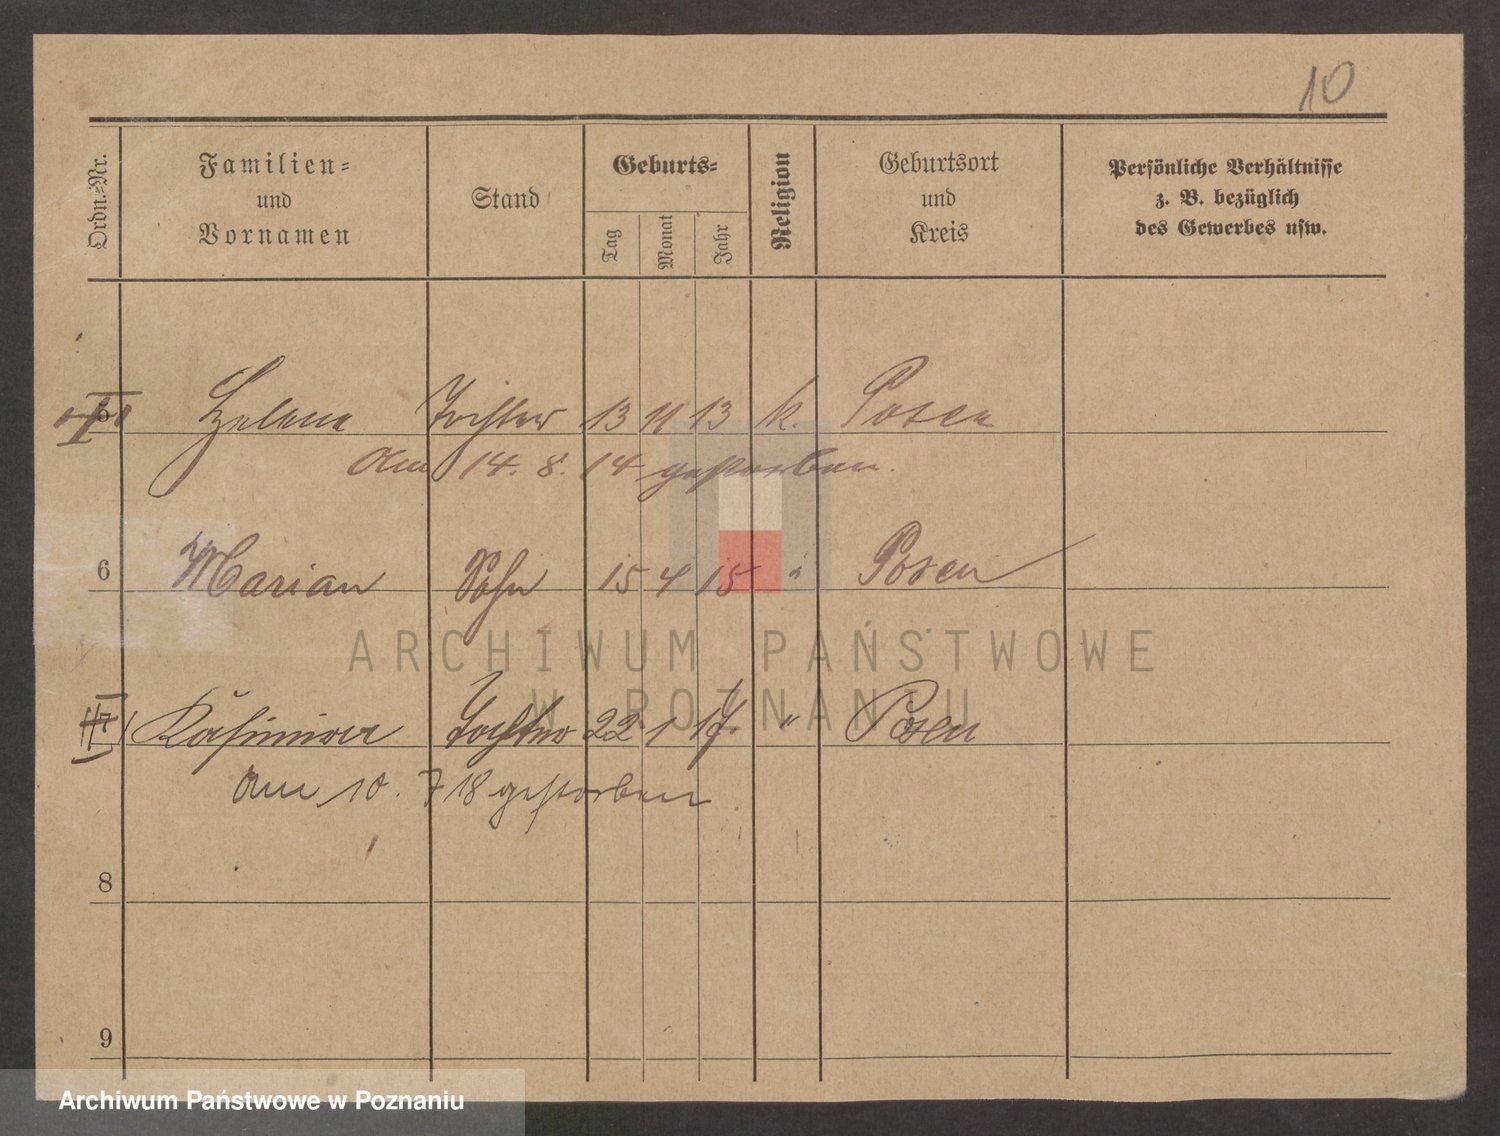 10
Ordn.-Nr.
Familien-
und
Vornamen
Stand
Geburts-
Tag
Monat
Jahr
Religion
Geburtsort
und
Kreis
Persönliche Verhältnisse
z. B. bezüglich
des Gewerbes usw.
Helene Tochter 13 11 13 k. Posen
am 14. 8. 14 gestorben.
6 Marian Sohn 15 4 15 " Posen
7 Kasimira Tochter 22 1 17. " Posen
am 10. 7 18 gestorben.
8
9
ARCHIWUM PAŃSTWOWE
W POZNANIU
Archiwum Państwowe w Poznaniu